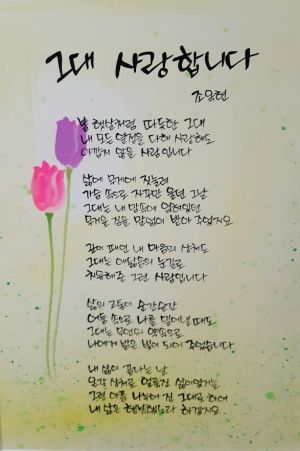 그대 사랑합니다
조욱현
봄 햇살처럼 따뜻한 그대
내 모든 열정을 다해 사랑해도
아깝지 않을 사람입니다
삶에 무게에 짓눌려
가슴 속으로 자꾸만 울던 그날
그대는 내 맘속에 얹혀있던
무거운 짐을 말없이 받아 주었지요
깊이 패인 내 마음의 상처도
그대는 애닯음의 눈길로
치유해준 그런 사람입니다
삶의 고통이 순간순간
어둠 속으로 나를 밀어넣을때도
그대는 무언의 약속으로
나에게 밝은 빛이 되어 주었습니다
내 삶이 끝나는 날
온갖 상처로 얼룩진 삶이었거늘
그런 아픔 나누어 진 그대로 하여
내 삶은 행복했노라 하겠지요